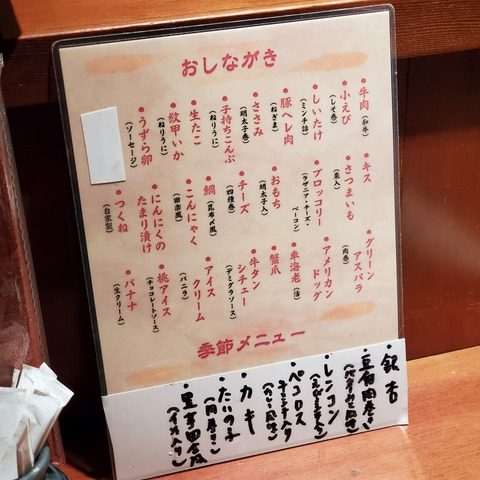 おしながき
牛肉（和牛）
小えび（しそ巻）
しいたけ（ミンチ詰）
豚ヘレ肉（ねぎま）
ささみ（明太子巻）
子持ちこんぶ（ねりうに）
生たこ
紋甲いか（ねりうに）
うずら卵（ソーセージ）
キス
さつまいも（栗入）
ブロッコリー（ラザニア・チーズ・ベーコン）
おもち（明太子入）
チーズ（四種巻）
鯛（昆布〆風）
こんにゃく（田楽風）
にんにくの
たまり漬け
つくね（自家製）
グリーン
アスパラ（肉巻）
アメリカン
ドッグ
車海老（活）
蟹爪
牛タン
シチュー（デミグラソース）
アイス
クリーム（バニラ）
桃アイス（チョコレートソース）
バナナ（生クリーム）
季節メニュー
・銀杏
・豆苗肉巻き
・レンコン
・ペコロス
・カキ
・たいの子